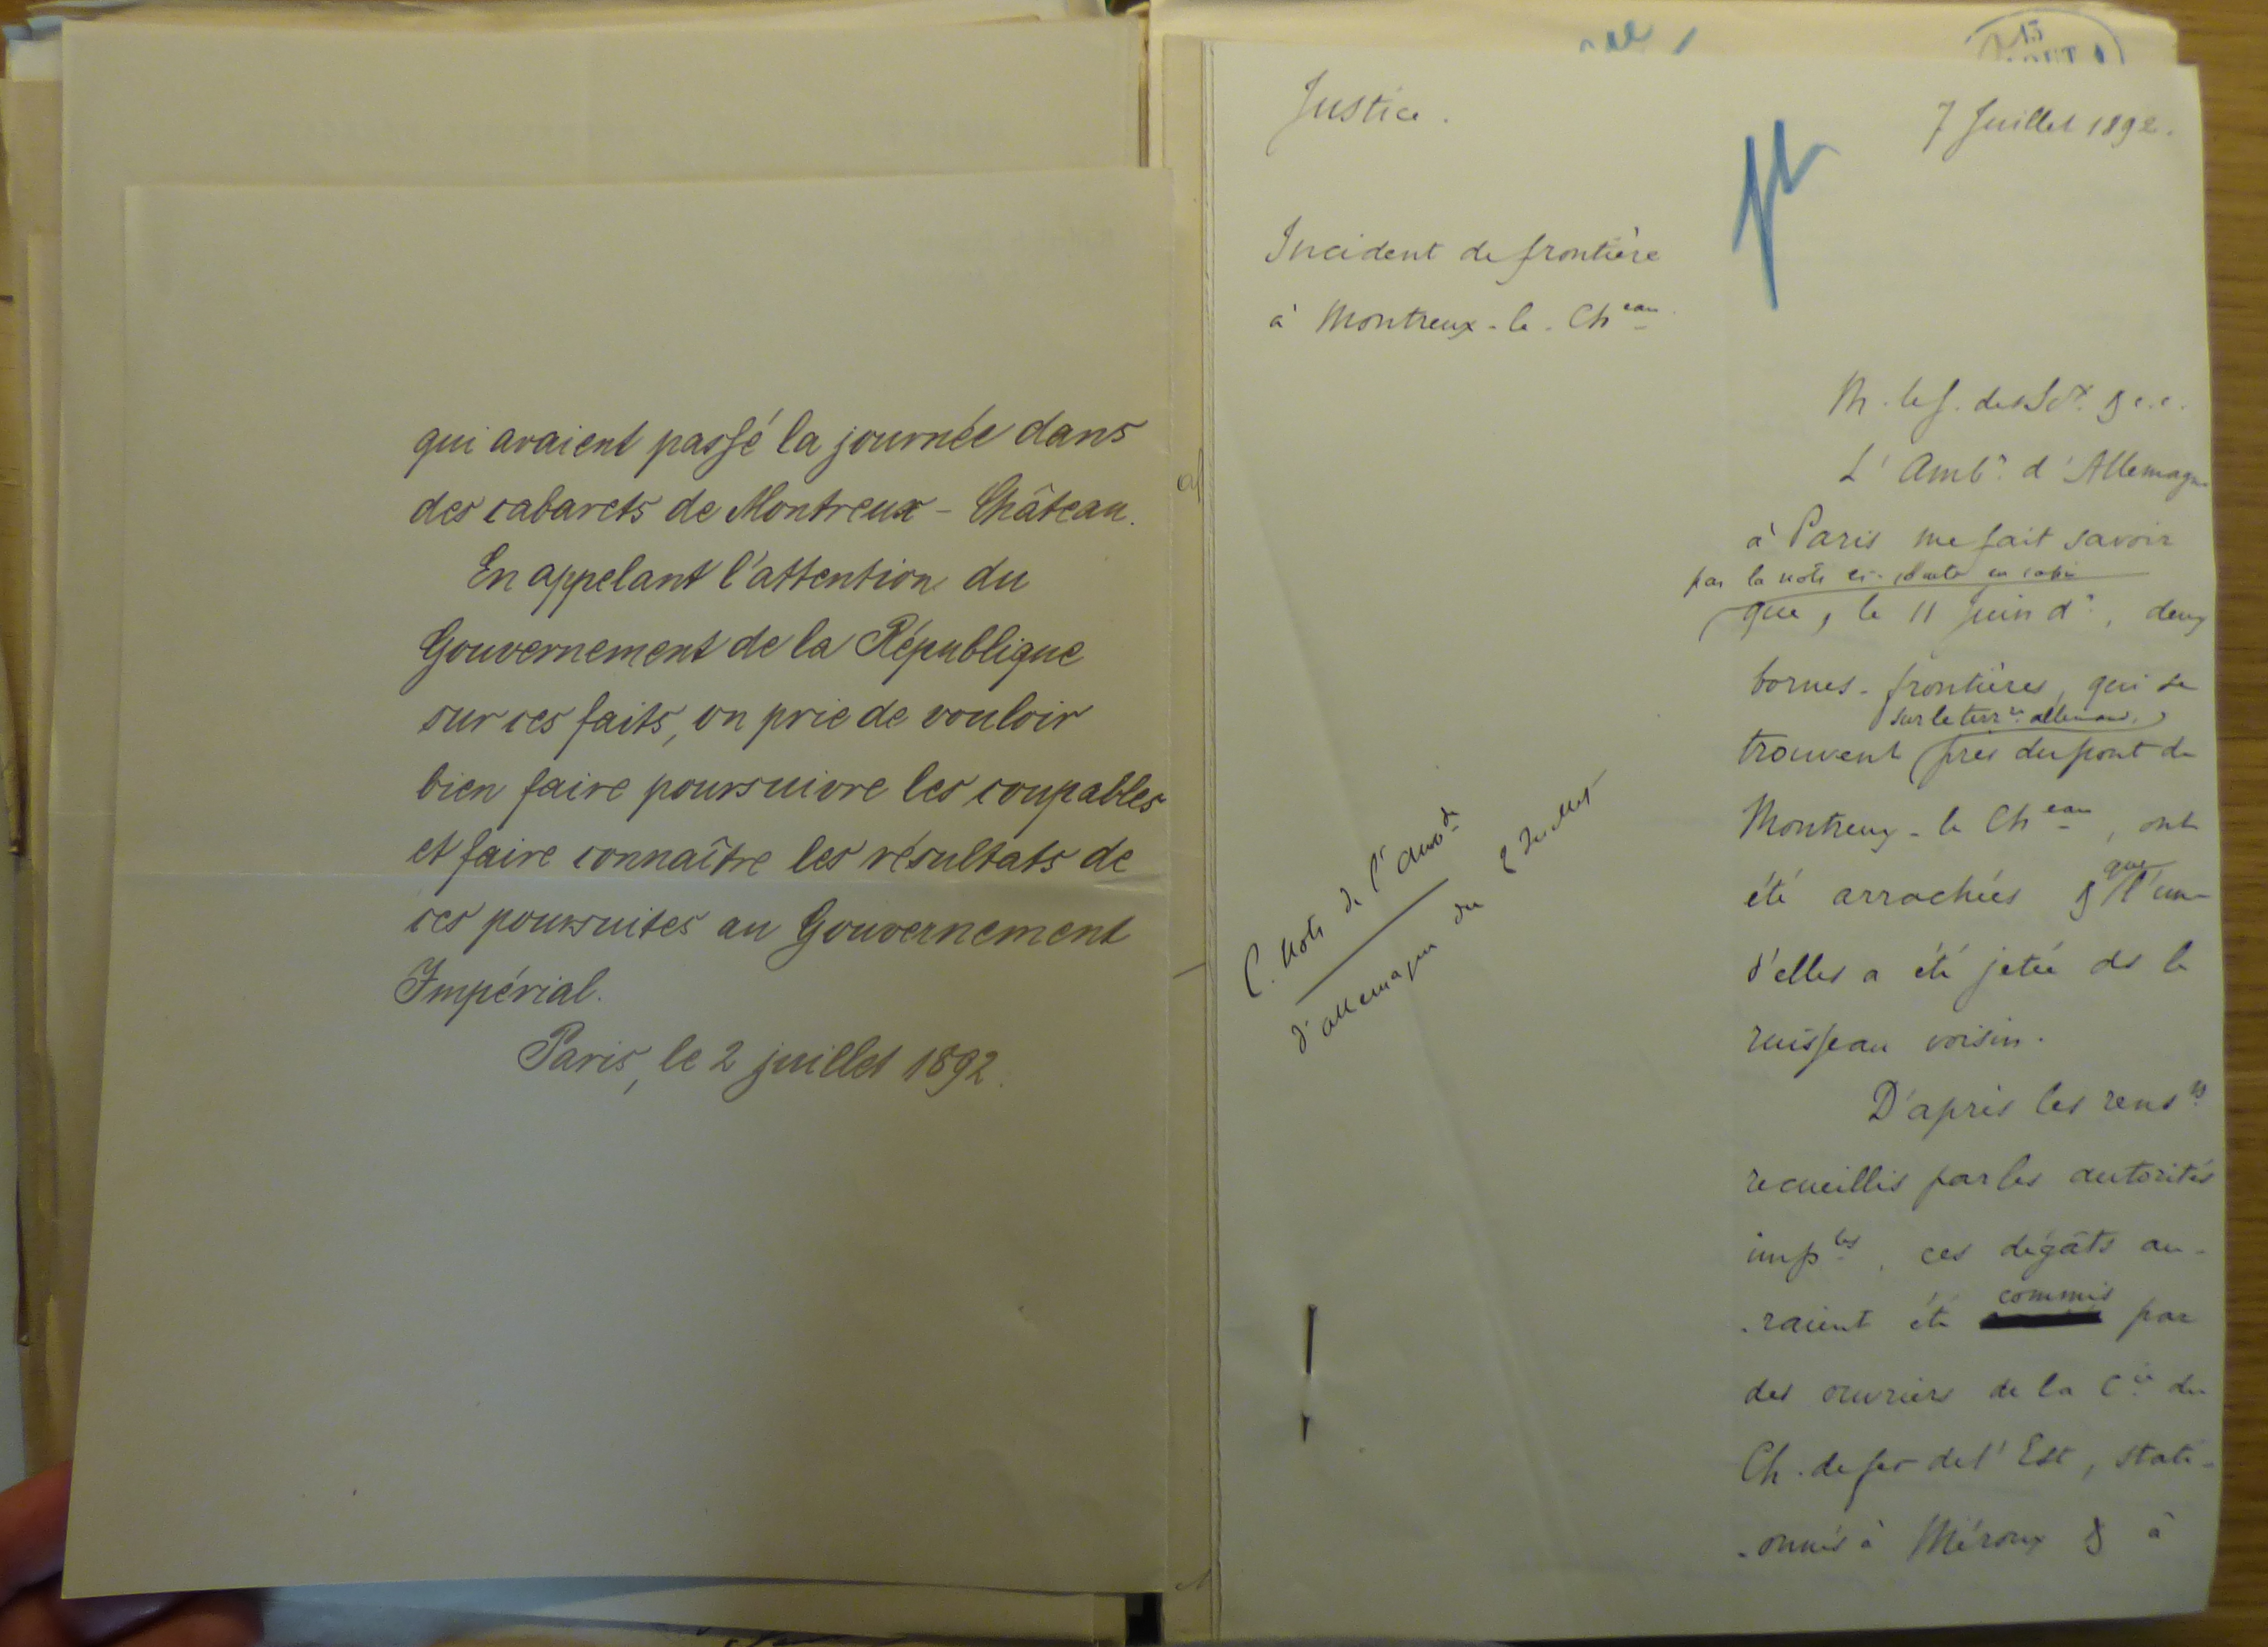 qui avaient passé la journée dans
des cabarets de Montreux - Château.
En appelant l'attention du
Gouvernement de la République
sur ces faits, on prie de vouloir
bien faire poursuivre les coupables
et faire connaître les résultats de
ces poursuites au Gouvernement
Impérial.
Paris, le 2 juillet 1892.
Justice.
7 Juillet 1892.
Incident de frontière
à Montreux-le-Ch eau
M. le G. des Sc x & c.c.
L'Amb r d'Allemagne
à Paris me fait savoir
par la note ci-jointe en copie
que, le 11 Juin d r, deux
bornes-frontières, qui se
sur le terr re allemand,
trouvent près du pont de
Montreux-le Ch eau, ont
été arrachées & que l'une
d'elles a été jetée ds le
ruisseau voisin.
C. Note de l'Amb de
d'Allemagne du 2 Juillet
D'après les rens ts
recueillis par les autorités
imp les, ces dégâts au-
-raient été commis par
des ouvriers de la C ie du
Ch. de fer de l'Est, stati-
-onnés à Méroux & à